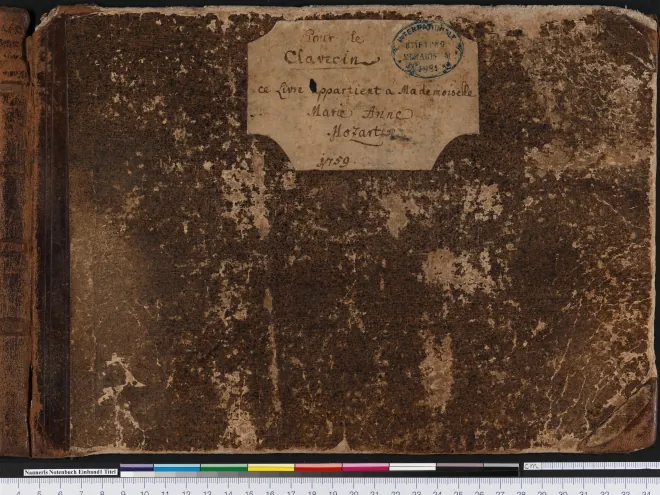 Pour le
Clavecin
ce Livre appartient a Mademoiselle
Marie Anne
Mozart
1759
INTERNATIONALE
STIFTUNG
MOZARTEUM
Nannerls Notenbuch Einband1 Titel
cm
4 5 6 7 8 9 10 11 12 13 14 15 16 17 18 19 20 21 22 23 24 25 26 27 28 29 30 31 32 33 34